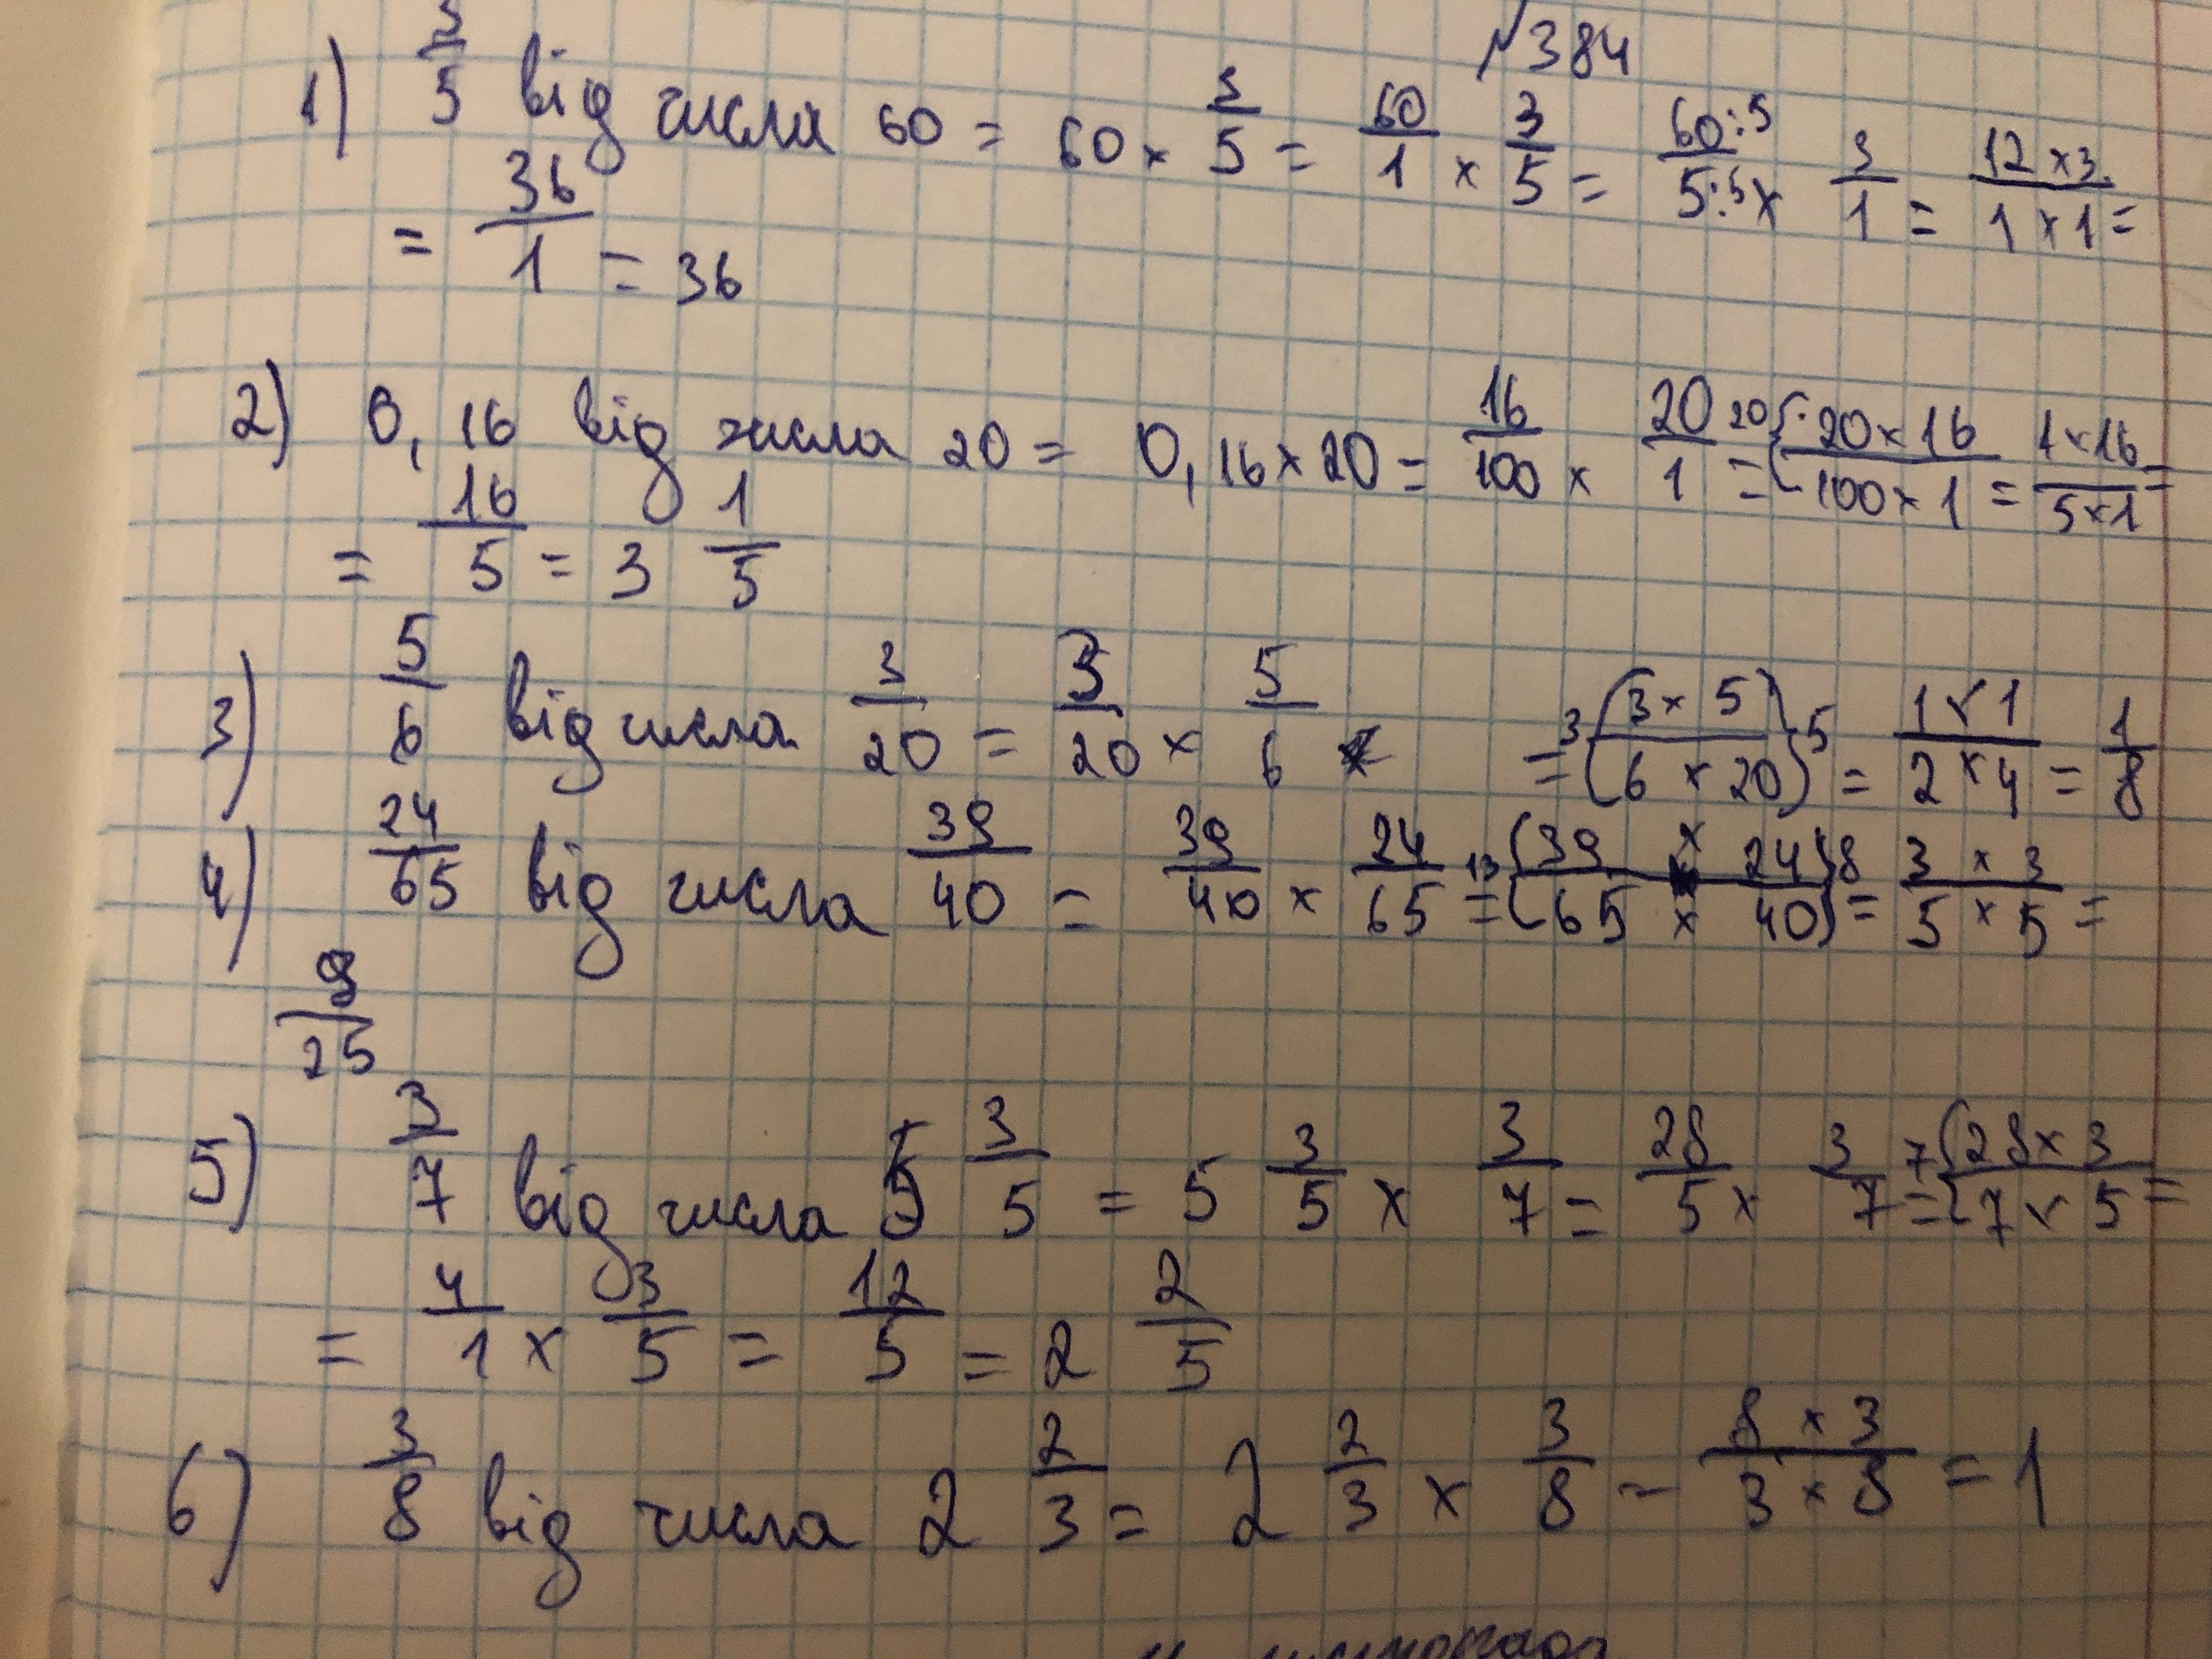 №384
1) 3/5 від числа 60 = 60 × 3/5 = 60/1 × 3/5 = 60:5/5:5 × 3/1 = 12 × 3/1 × 1 =
= 36/1 = 36
2) 0,16 від числа 20 = 0,16 × 20 = 16/100 × 20/1 = 20(20 × 16/100 × 1 = 1 × 16/5 × 1 =
= 16/5 = 3 1/5
3) 5/6 від числа 3/20 = 3/20 × 5/6 = 3(3 × 5/6 × 20)5 = 1 × 1/2 × 4 = 1/8
4) 24/65 від числа 39/40 = 39/40 × 24/65 = 13(39 × 24/65 × 40)8 = 3 × 3/5 × 5 =
9/25
5) 3/7 від числа 5 3/5 = 5 3/5 × 3/7 = 28/5 × 3/7 = 7(28 × 3/7 × 5 =
= 4/1 × 3/5 = 12/5 = 2 2/5
6) 3/8 від числа 2 2/3 = 2 2/3 × 3/8 = 8 × 3/3 × 8 = 1